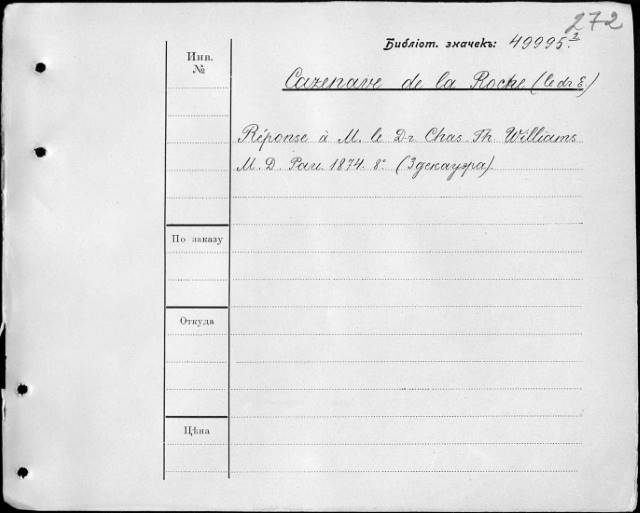 272
Библіот. значекъ: 49995.2
Инв.
№
Cazenave de la Roche (le dr E)
Réponse à M. le Dr Chas. Th. Williams
M. D. Pau. 1874. 8° (Здекауэра).
По заказу
Откуда
Цѣна